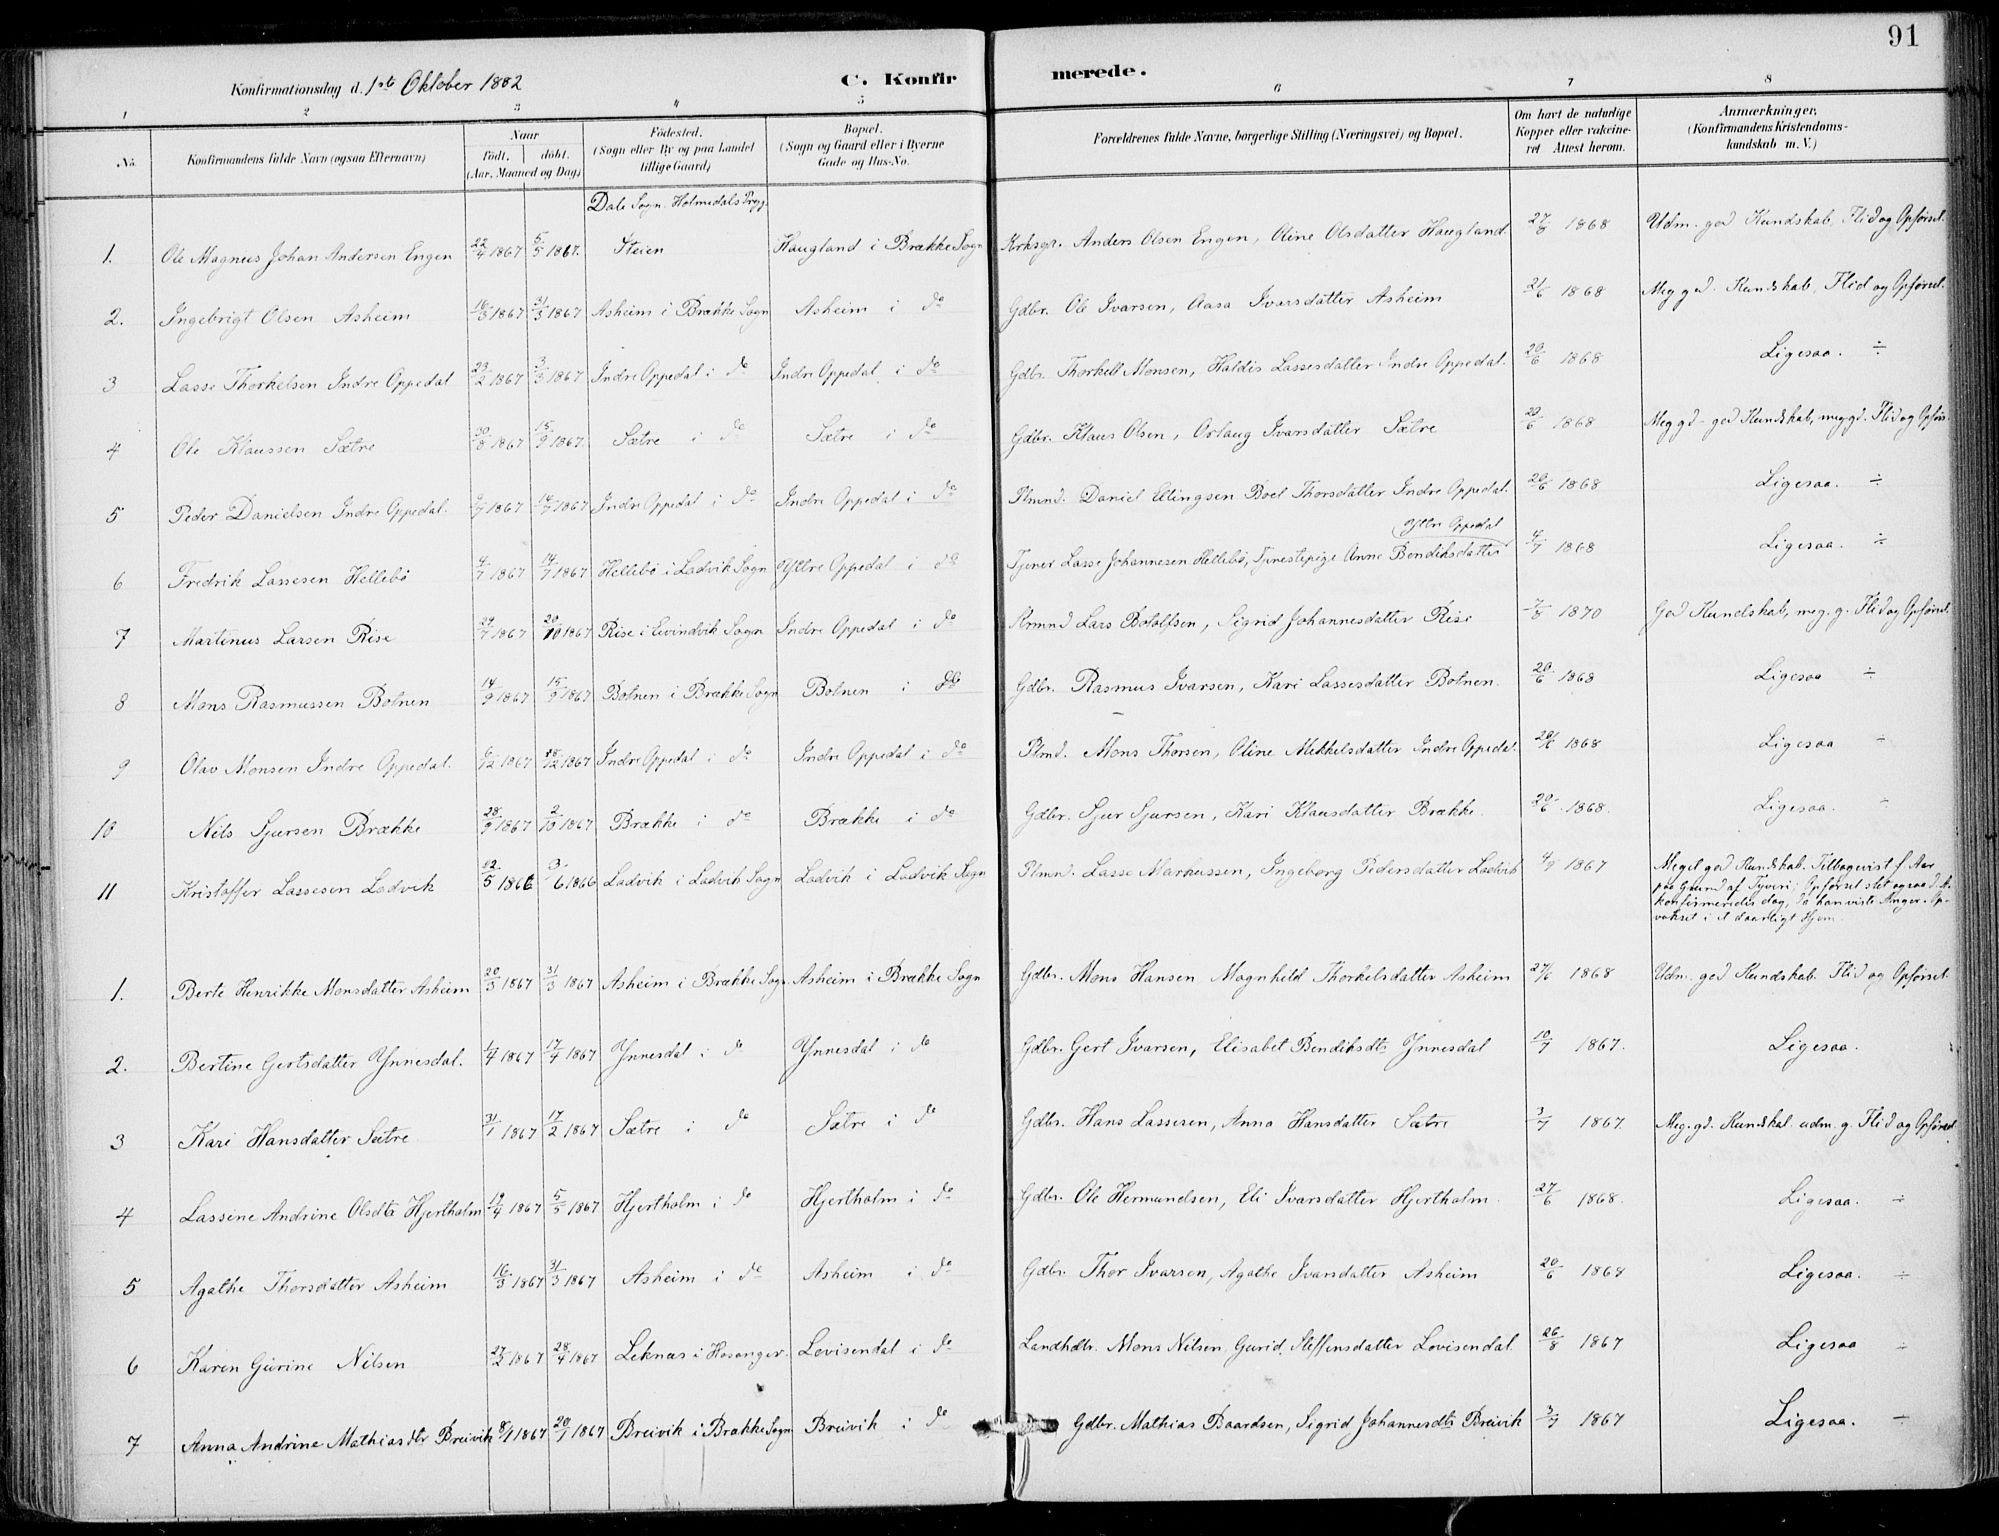 91
Konfirmationsdag d. 1ste Oktober 1882
C. Konfirmerede.
1 2 3 4 5 6 7 8
No.
Konfirmandens fulde Navn (ogsaa Efternavn)
Naar
født. døbt.
(Aar, Maaned og Dag)
Fødested.
(Sogn eller By og paa Landet
tillige Gaard)
Bopæl.
(Sogn og Gaard eller i Byerne
Gade og Hus-No.
Forældrenes fulde Navne, borgerlige Stilling (Næringsvei) og Bopæl.
Om havt de naturlige
Kopper eller vakcine-
ret Attest herom.
Anmærkninger,
(Konfirmandens Kristendoms-
kundskab m. V.)
Dale Sogn Holmedals Prgj.
1. Ole Magnus Johan Andersen Engen 22/4 1867 5/5 1867. Steien Haugland i Brække Sogn Krksgr. Anders Olsen Engen, Oline Olsdatter Haugland 27/6 1868 Udm. god Kundskab, Flid og Opførsel.
2. Ingebrigt Olsen Asheim 16/3 1867 31/3 1867 Asheim i Brække Sogn Asheim i do Gdbr. Ole Ivarsen, Aasa Ivarsdatter Asheim 21/6 1868 Meg. god. Kundskab, Flid og Opførsel.
3 Lasse Thorkelsen Indre Oppedal 23/2 1867 3/3 1867 Indre Oppedal i do Indre Oppedal i do Gdbr. Thorkell Monsen, Haldis Lassesdatter Indre Oppedal. 20/6 1868 Ligesaa. ÷
4 Ole Klaussen Sætre 30/8 1867 15/9 1867 Sætre i do Sætre i do Gdbr. Klaus Olsen, Oslaug Ivarsdatter Sætre 20/6 1868 Meg gd - god Kundskab, meg gd. Flid og Opførs.
5 Peder Danielsen Indre Oppedal. 9/7 1867 14/7 1867 Indre Oppedal i do Indre Oppedal i do Plmnd. Daniel Ellingsen Boel Thorsdatter Indre Oppedal. 20/6 1868 Ligesaa. ÷
Yttre Oppedal
6 Fredrik Lassesen Hellebø 4/7 1867 14/7 1867 Hellebø i Ladvik Sogn Yttre Oppedal i do Tjener Lasse Johannesen Hellebø, Tjenestepige Anne Bendiksdatter 4/7 1868 Ligesaa. ÷
7 Martinus Larsen Rise 29/7 1867 20/10 1867 Rise i Eivindvik Sogn Indre Oppedal i do Lars Botolfsen, Sigrid Johannesdatter Rise 7/8 1870 God Kundskab, meg. g. Flid og Opførsel.
8 Mons Rasmussen Botnen 14/9 1867 15/9 1867 Botnen i Brække Sogn Botnen i do Gdbr. Rasmus Ivarsen, Kari Lassesdatter Botnen. 20/6 1868 Ligesaa ÷
9 Olav Monsen Indre Oppedal. 6/12 1867 /12 1867 Indre Oppedal i do Indre Oppedal i do Plmd. Mons Thorsen, Oline Mikkelsdatter Indre Oppedal. 20/6 1868 Ligesaa ÷
10 Nils Sjursen Brække 28/9 1867 2/10 1867 Brække i do Brække i do Gdbr. Sjur Sjursen, Kari Klausdatter Brække. 20/6 1868. Ligesaa. ÷
11 Kristoffer Lassesen Ladvik 12/5 1866 3/6 1866 Ladvik i Ladvik Sogn Ladvik i Ladvik Sogn Plmnd. Lasse Markussen, Ingeborg Pedersdatter Ladvik 4/9 1867 Meget god Kundskab. Tilbagevist f. Aar
paa Grund af Tyveri; Opførsel slet ogsaa d. A.
konfirmeredes dog, da han viste Anger. Op-
vokset i et daarligt Hjem.
1. Berte Henrikke Monsdatter Asheim 20/3 1867 31/3 1867 Asheim i Brække Sogn. Asheim i Brække Sogn Gdbr. Mons Hansen Magnhild Thorkelsdatter Asheim 27/6 1868 Udm. god Kundskab. Flid og Opførsel.
2. Bertine Gertsdatter Ynnesdal. 1/4 1867 17/4 1867 Ynnesdal i do Ynnesdal i do Gdbr. Gert Ivarsen, Elisabet Bendiksdtr Ynnesdal 10/7 1867. Ligesaa.
3 Kari Hansdatter Sætre 31/1 1867 17/2 1867 Sætre i do Sætre i do Gdbr. Hans Lassesen, Anna Hansdatter Sætre 3/7 1867. Meg. gd. Kundskab. udm. g. Flid og Opførsel
4 Lassine Andrine Olsdtr Hjertholm 19/4 1867 5/5 1867 Hjertholm i do Hjertholm i do Gdbr. Ole Hermundsen, Eli Ivarsdatter Hjertholm. 27/6 1868. Ligesaa. ÷
5 Agathe Thorsdatter Asheim 16/3 1867 31/3 1867 Asheim i do Asheim i do Gdbr. Thor Ivarsen, Agathe Ivarsdatter Asheim 20/6 1868 Ligesaa. ÷
6 Karen Gurine Nilsen 27/3 1867 28/4 1867 Leknæs i Hosanger. Lovisendal i do Landhdlr. Mons Nilsen, Gurid Steffensdatter Lovisendal. 26/8 1867 Ligesaa ÷
7 Anna Andrine Mathiasdtr Breivik 8/1 1867 20/1 1867 Breivik i Brække Sogn Breivik i do Gdbr. Mathias Baardsen, Sigrid Johannesdtr Breivik 3/7 1867 Ligesaa. ÷